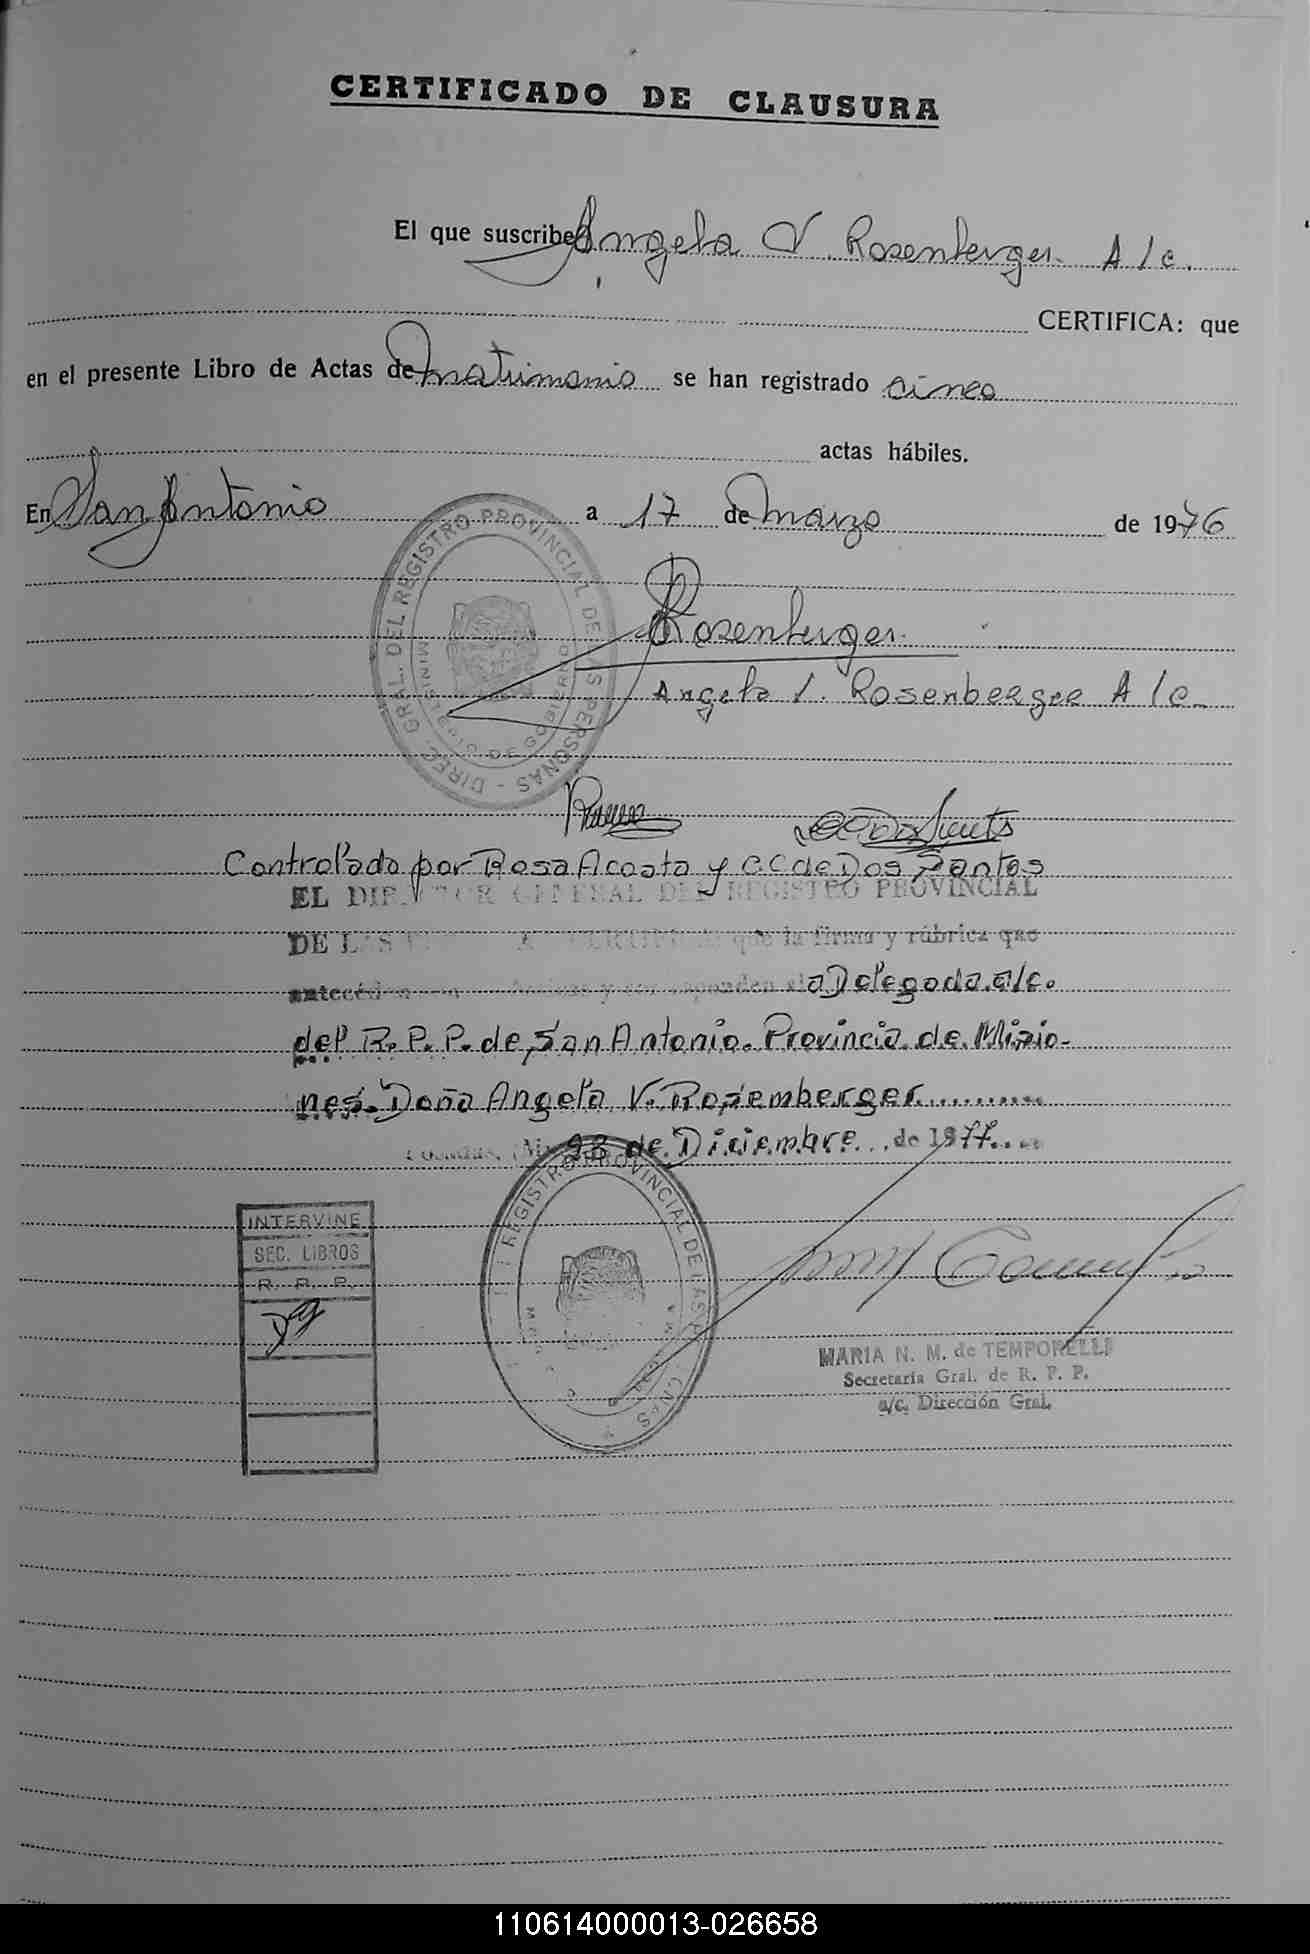 CERTIFICADO DE CLAUSURA
El que suscribe Angela V. Rosenberger. A/c.
CERTIFICA: que
en el presente Libro de Actas de matrimonio se han registrado cinco
actas hábiles.
En San Antonio a 17 de marzo de 1976
DIREC. GRAL. DEL REGISTRO PROVINCIAL DE LAS PERSONAS
MINISTERIO DE GOBIERNO
Rosenberger.
Angela V. Rosenberger A/c.
Controlado por Rosa Acosta y C.C de Dos Santos
EL DIRECTOR GENERAL DEL REGISTRO PROVINCIAL
DE LAS que la firma y rúbrica que
antecéden y corresponden a Delegada.a/c.
del R.P.P. de San Antonio. Provincia de Misio-
nes. Doña Angela V. Rosemberger..........
de Diciembre...de 1977....
REGISTRO PROVINCIAL DE LAS
INTERVINE
SEC. LIBROS
R. P. P.
MARIA N. M. de TEMPORELLI
Secretaria Gral. de R. P. P.
a/c. Dirección Gral.
110614000013-026658